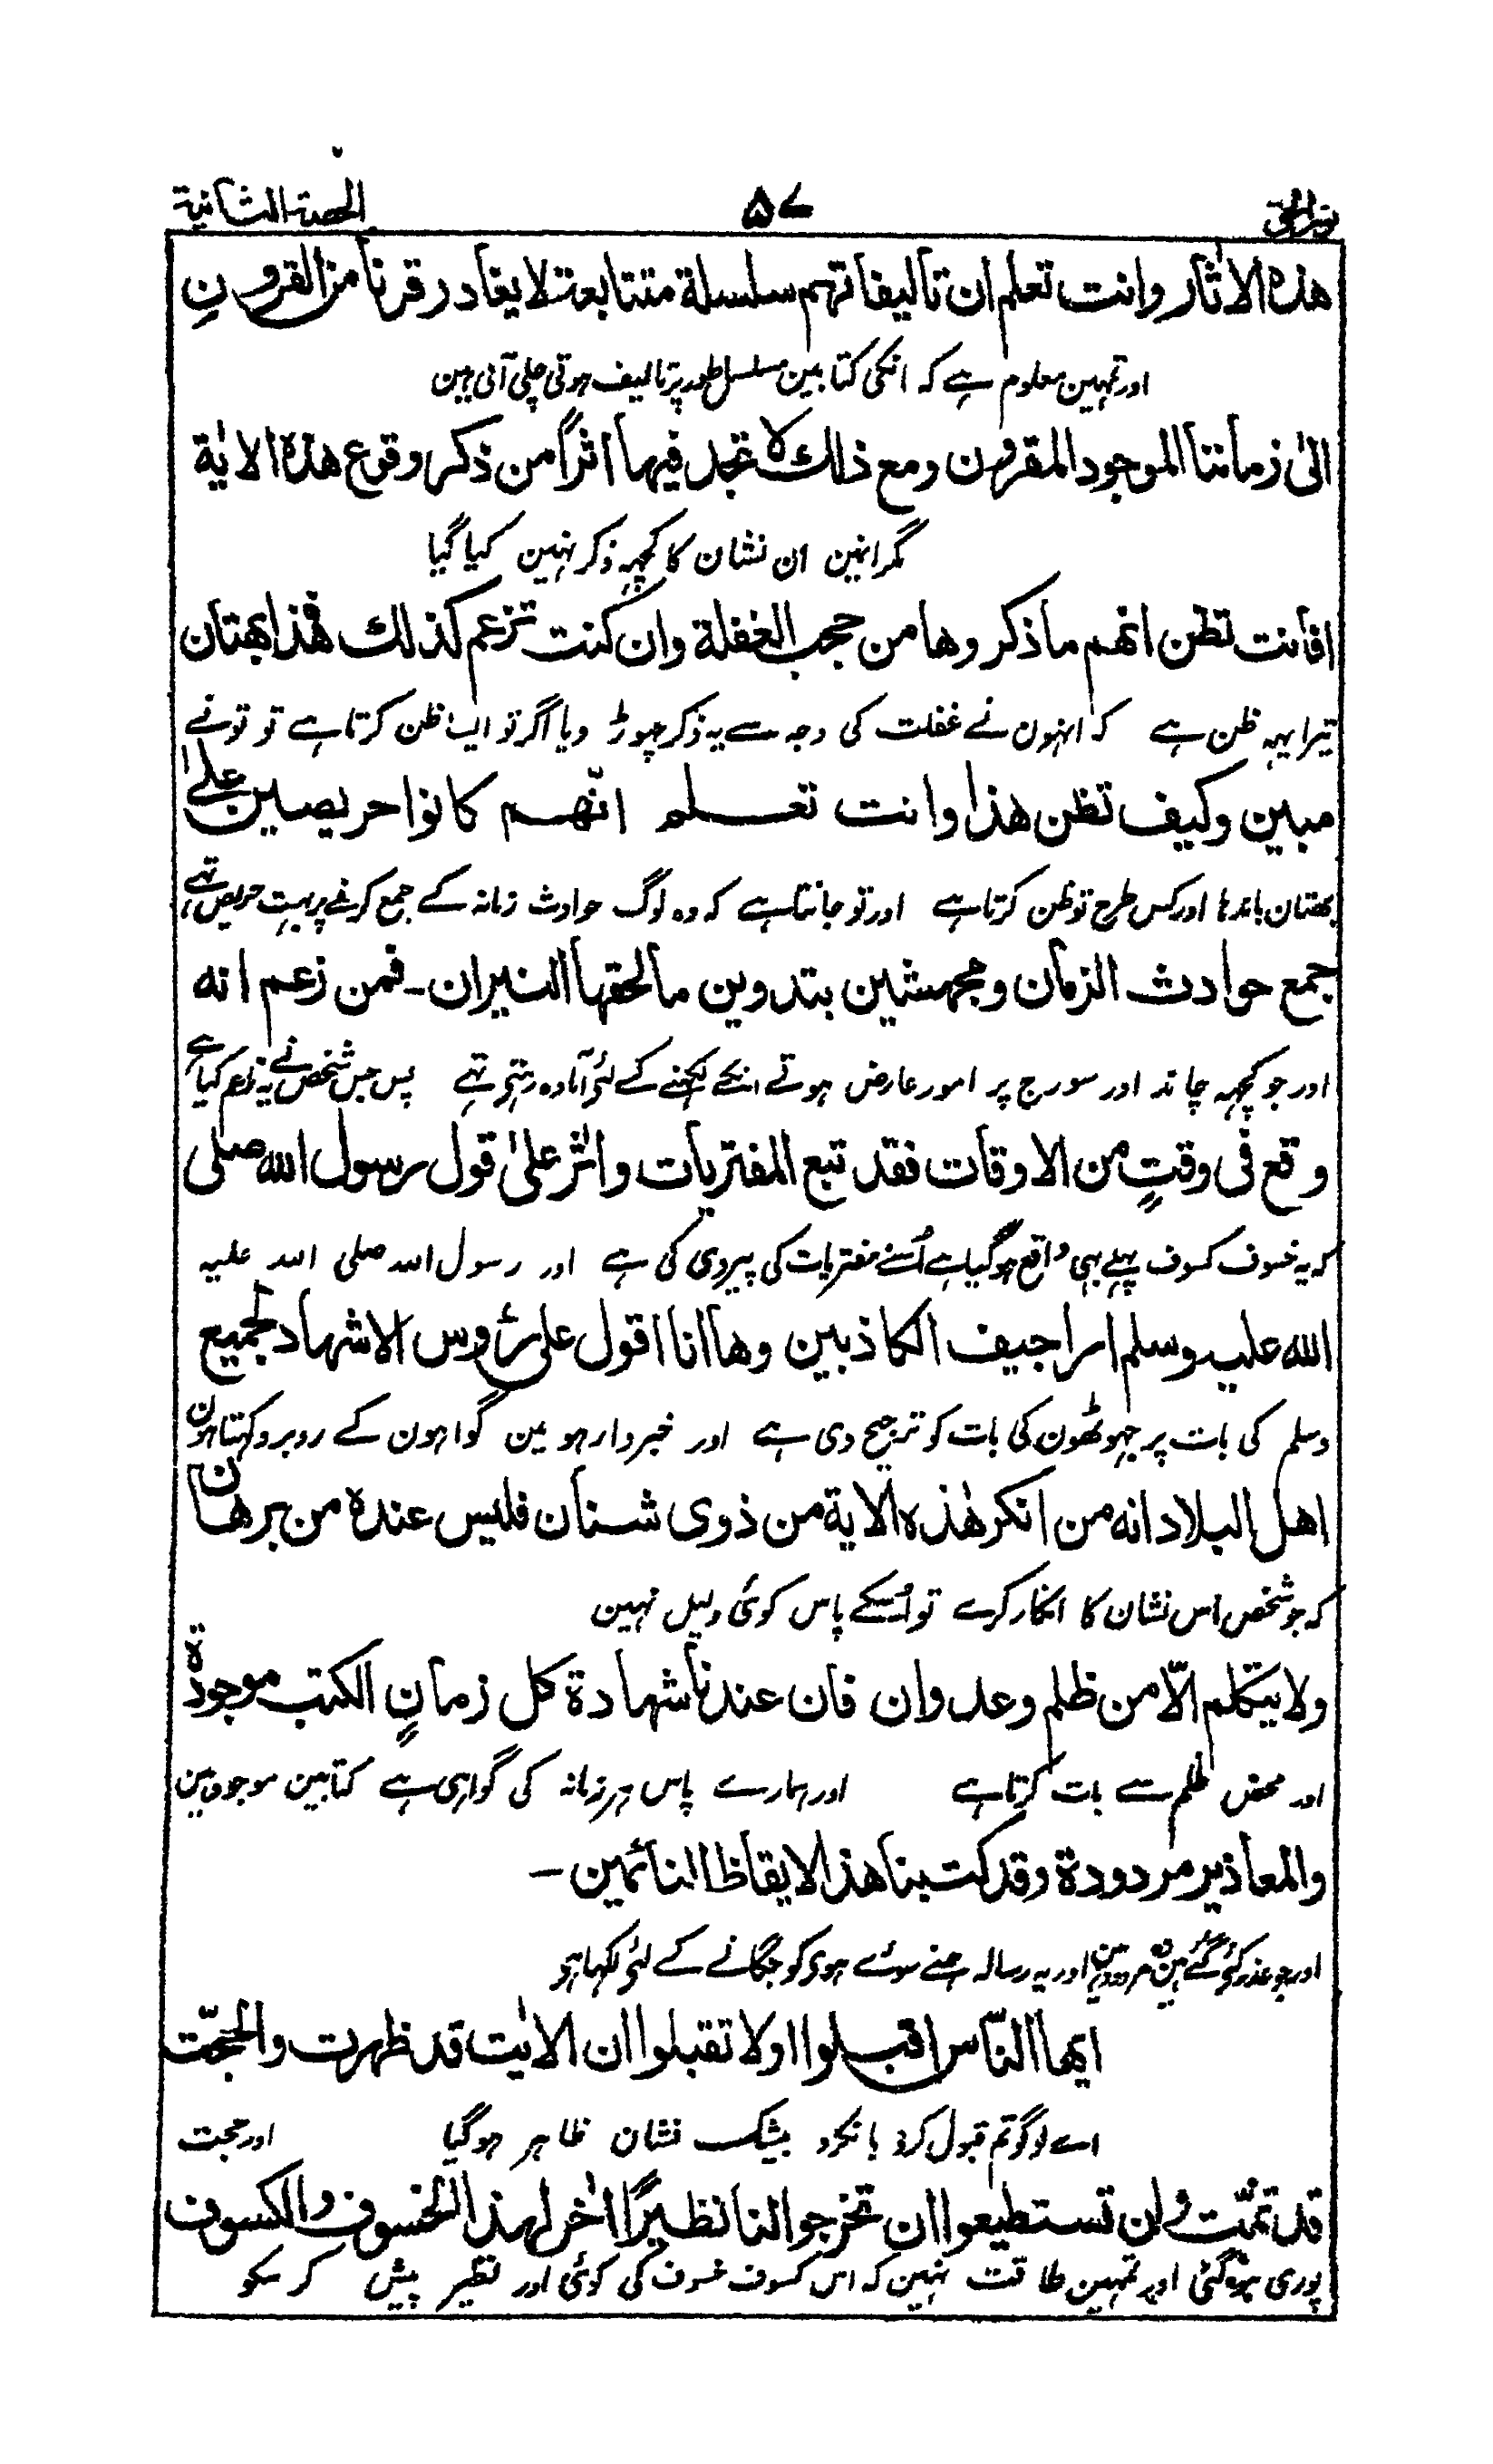 نور الحق ۵۷ الحصة الثانية
هذه الاٰثار وانت تعلم ان تاليفاتهم سلسلة متتابعة لا يغادر قرنا من القرونِ
اور تمہین معلوم ہے کہ انکی کتابین مسلسل طور پر تالیف ہوتی چلی آئی ہین
الىٰ زماننا الموجود المقرون ومع ذلك لا تجد فيها اثراً من ذكر وقوع هذه الاٰية
مگر انہین ان نشان کا کچہہ ذکر نہین کیا گیا
افانت تظن انهم ما ذكروها من حجب الغفلة وان كنت تزعم كذلك فهٰذا بهتان
تیرا یہہ ظن ہے کہ انہون نے غفلت کی وجہ سے یہ ذکر چہوڑ دیا اگر تو ایسا ظن کرتا ہے تو تو نے
مبين وكيف تظن هذا وانت تعلم انّهم كانوا حريصين علىٰ
بهتان باندها اور کس طرح تو ظن کرتا ہے اور تو جانتا ہے کہ وہ لوگ حوادث زمانہ کے جمع کرنے پر بہت حریص تہے
جمع حوادث الزمان ومجهشين بتدوين ما لحقها النيران۔ فمن زعم انه
اور جو کچہہ چاند اور سورج پر امور عارض ہوتے انکے لکہنے کے لئے آمادہ رہتے تہے پس جس شخص نے یہ زعم کیا ہے
وقع فى وقتٍ من الاوقات فقد تبع المفتريات واٰثر علىٰ قول رسول الله صلى
کہ یہ خسوف کسوف پہلے بہی واقع ہو گیا ہے اُسنے مفتریات کی پیروی کی ہے اور رسول اللہ صلی اللہ علیہ
الله عليه وسلم اراجيف الكاذبين وها انا اقول على رءوس الاشهاد لجميع
وسلم کی بات پر جہوٹھون کی بات کو ترجیح دی ہے اور خبردار ہو مین گواہون کے روبرو کہتا ہون
اهل البلاد انه من انكر هٰذه الاٰية من ذوى شنان فليس عنده من برهان
کہ جو شخص اس نشان کا انکار کرے تو اُسکے پاس کوئی دلیل نہین
ولا يتكلم الّا من ظلم وعدوان فان عندنا شهادة كل زمانٍ الكتب موجودة
اور محض ظلم سے بات کرتا ہے اور ہمارے پاس ہر زمانہ کی گواہی ہے کتابین موجود ہین
والمعاذير مردودة وقد كتبنا هذا لايقاظ النائمين۔
اور جو عذر کئے گئے ہین وہ مردود ہین اور یہ رسالہ ہمنے سوئے ہوئو کو جگانے کے لئے لکہا ہے
ايها النّاس اقبلوا اولا تقبلوا ان الاٰيٰت قد ظهرت والحجّة
اے لوگو تم قبول کرو یا نکرو بیشک نشان ظاہر ہوگیا اور حجت
قد تمّت ولن تستطيعوا ان تخرجوا لنا نظيرًا اٰخر لهذا الخسوف والكسوف
پوری ہو گئی اور تمہین طاقت نہین کہ اس کسوف خسوف کی کوئی اور نظیر پیش کر سکو